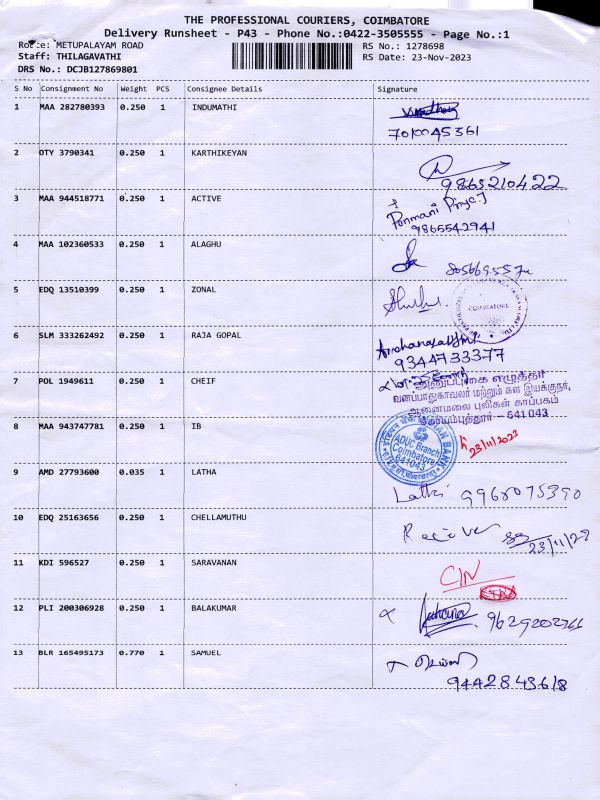 THE PROFESSIONAL COURIERS, COIMBATORE
Delivery Runsheet - P43 - Phone No.:0422-3505555 - Page No.:1
METUPALAYAM ROAD RS No.: 1278698
Staff: THILAGAVATHI RS Date: 23-Nov-2023
DRS No.: DCJB127869801
S No Consignment No Weight PCS Consignee Details Signature
1 MAA 282780393 0.250 1 INDUMATHI
7010045361
2 OTY 3790341 0.250 1 KARTHIKEYAN
9865210422
3 MAA 944518771 0.250 1 ACTIVE
Ponmani Priya.J
9865542941
4 MAA 102360533 0.250 1 ALAGHU
5 EDQ 13510399 0.250 1 ZONAL
COIMBATORE
6 SLM 333262492 0.250 1 RAJA GOPAL
9344733377
7 POL 1949611 0.250 1 CHEIF
வனப்பாதுகாவலர் மற்றும் கள இயக்குநர்,
ஆனைமலை புலிகள் காப்பகம்
கோயம்புத்தூர் - 641 043
8 MAA 943747781 0.250 1 IB
INDIAN BANK
ADUC Branch
Coimbatore
641043
23/11/2023
9 AMD 27793600 0.035 1 LATHA
Latha
10 EDQ 25163656 0.250 1 CHELLAMUTHU
23/11/23
11 KDI 596527 0.250 1 SARAVANAN
C/N
12 PLI 200306928 0.250 1 BALAKUMAR
13 BLR 165495173 0.770 1 SAMUEL
9442843618